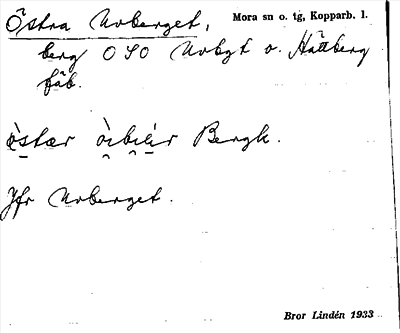 Östra Urberget, Mora sn o. tg, Kopparb. l.
berg OSO Urbgt o. Hättberg
fäb.
Bergk.
Jfr Urberget.
Bror Lindén 1933